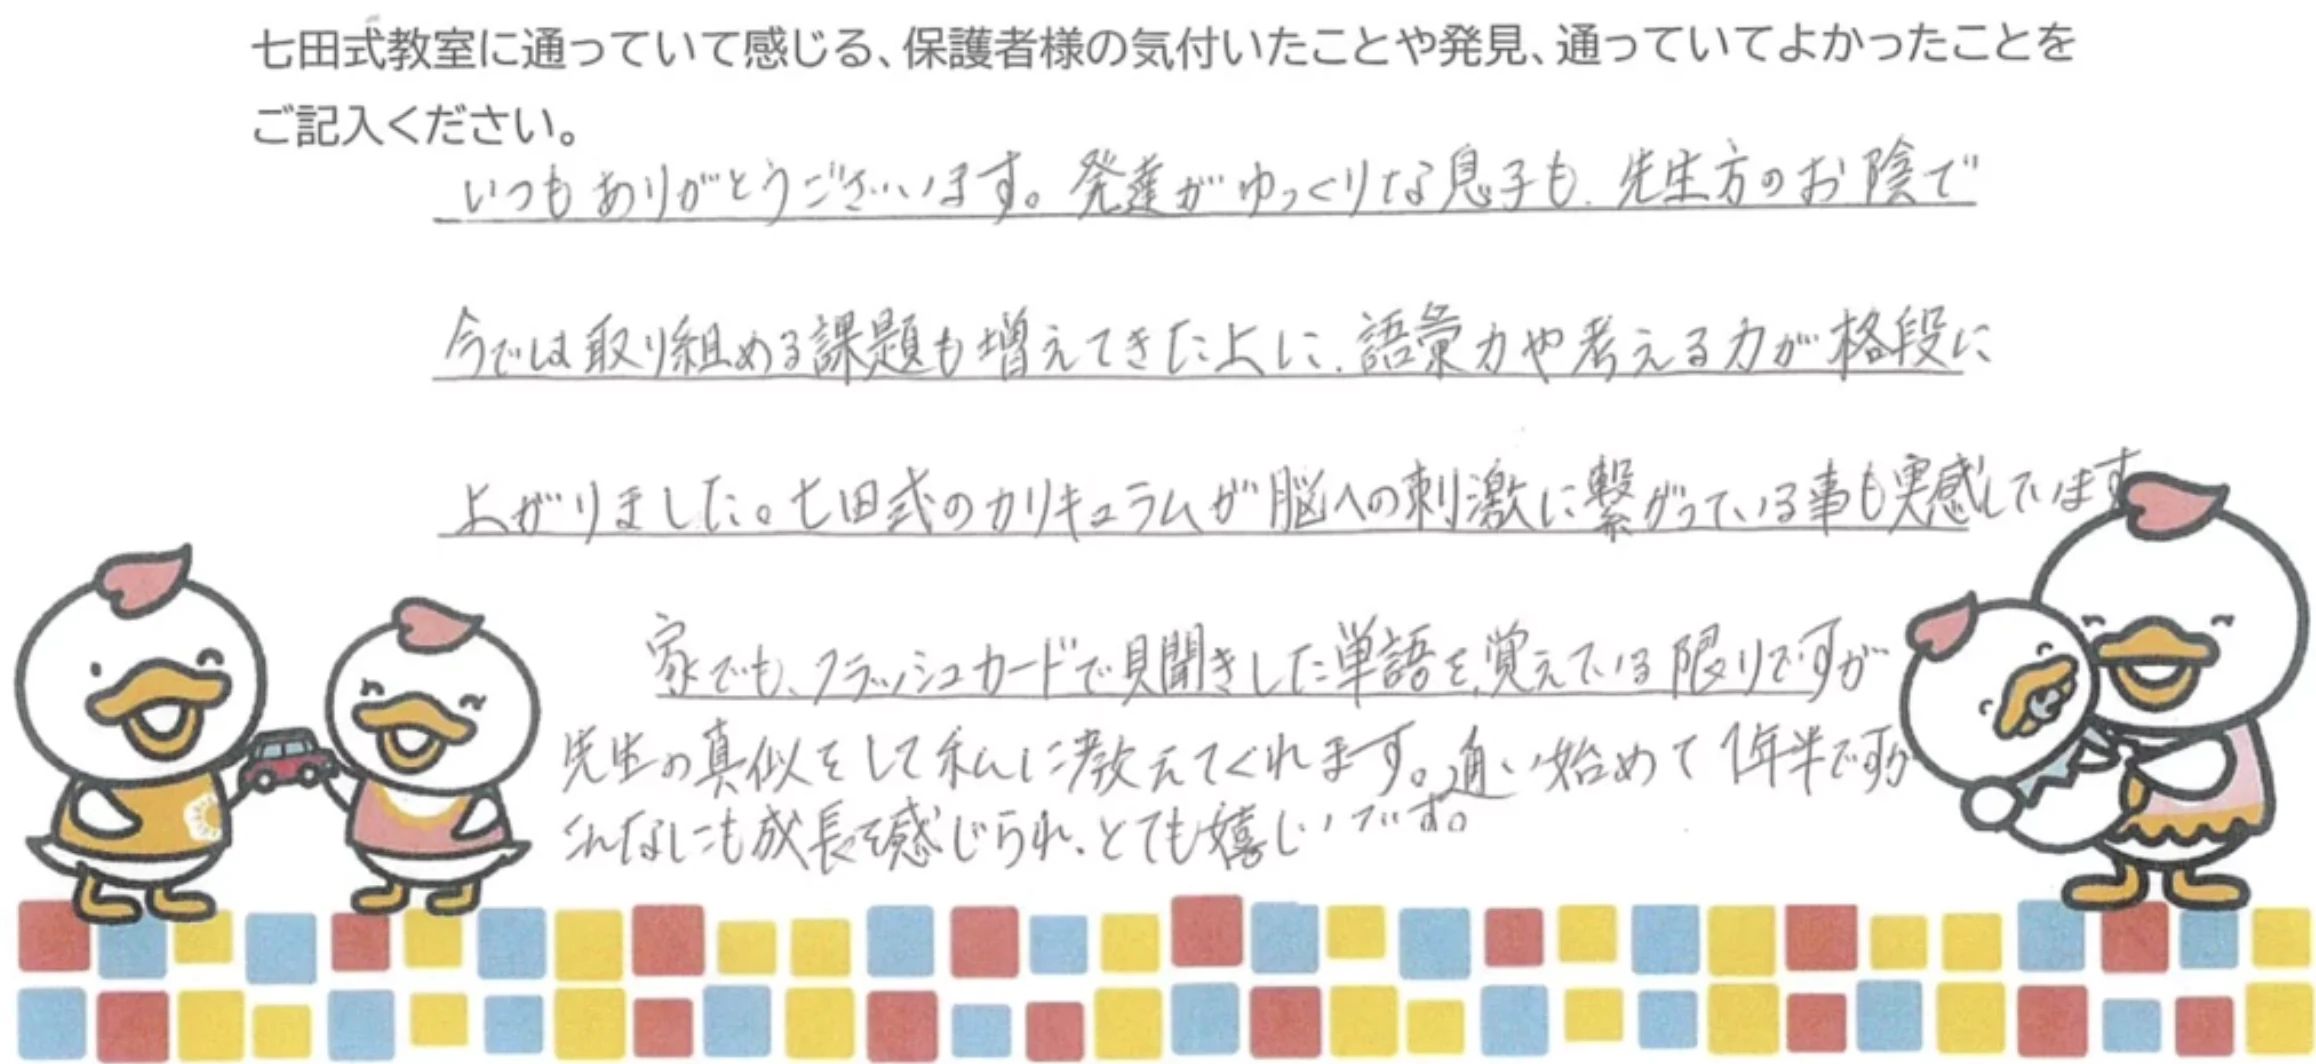 七田式教室に通っていて感じる、保護者様の気付いたことや発見、通っていてよかったことを
ご記入ください。
いつもありがとうございます。発達がゆっくりな息子も、先生方のお陰で
今では取り組める課題も増えてきた上に、語彙力や考える力が格段に
上がりました。七田式のカリキュラムが脳への刺激に繋がっている事も実感しています
家でも、フラッシュカードで見聞きした単語を、覚えている限りですが
先生の真似をして私に教えてくれます。通い始めて1年半ですが
こんなにも成長を感じられ、とても嬉しいです。